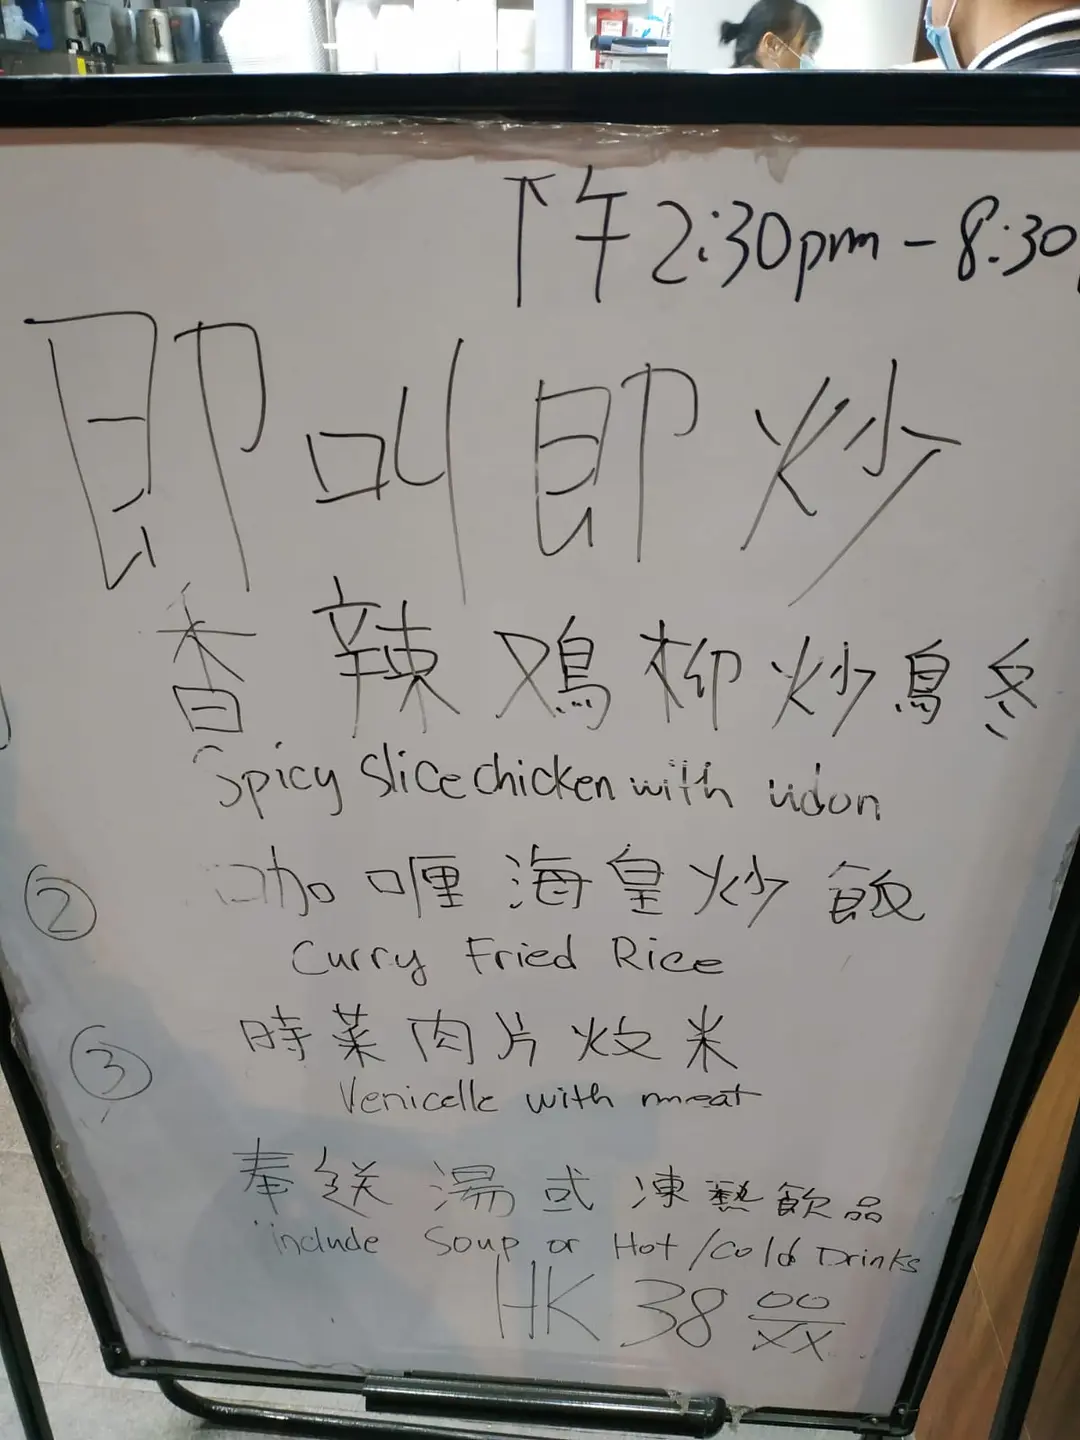 下午 2:30pm - 8:30
即叫即炒
香辣鸡柳炒烏冬
Spicy Slice chicken with udon
② 咖喱海皇炒飯
Curry Fried Rice
③ 時菜肉片炆米
Venicelle with meat
奉送湯或凍熱飲品
include Soup or Hot / Cold Drinks
HK 38 00/XX